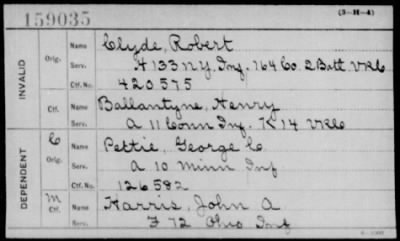 159035
(3-H-4)
INVALID
Orig. Name Clyde, Robert
Serv. A 133 N.Y. Inf. 164 Co. 2 Batt VRC
Ctf. No. 420575
Ctf. Name Ballantyne, Henry
Serv. A 11 Conn Inf. K 14 VRC
DEPENDENT
C Orig. Name Pettie, George C.
Serv. A 10 Minn Inf
Ctf. No. 126582
M Ctf. Name Harris, John A
Serv. F 72 Ohio Inf